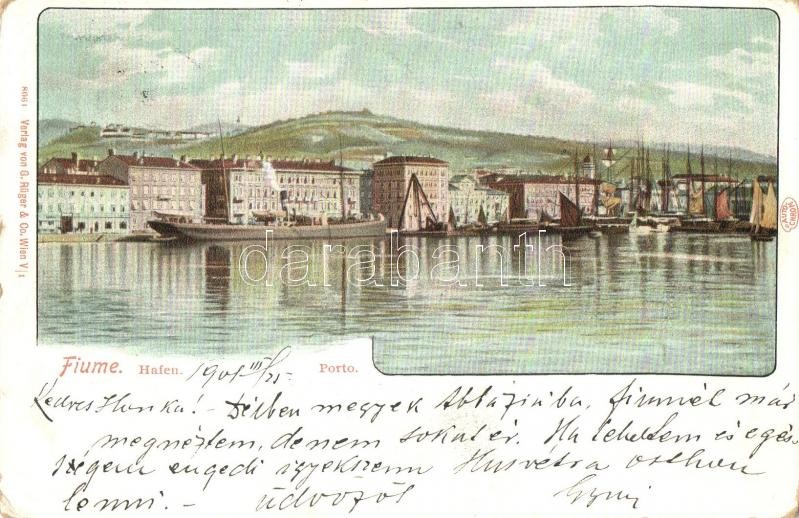 8061 Verlag von G. Rüger & Co. Wien V/1
AUTO CHROM
darabanth
Fiume. Hafen. 1901 III/25 Porto.
Kedves Ilonka! – Délben megyek Abbáziába, fiumét már
megnéztem, de nem sokat ér. Ha tehetem és egés-
ségem engedi igyekszem Husvétra otthon
lenni. – üdvözöl